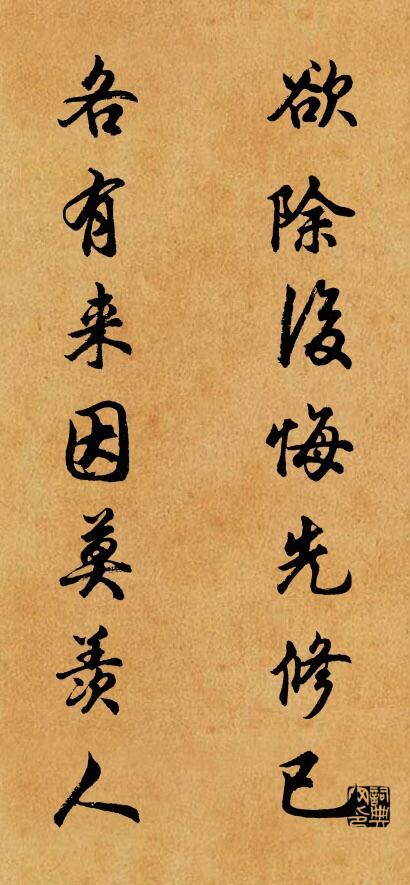 欲除後悔先修己
各有来因莫羡人